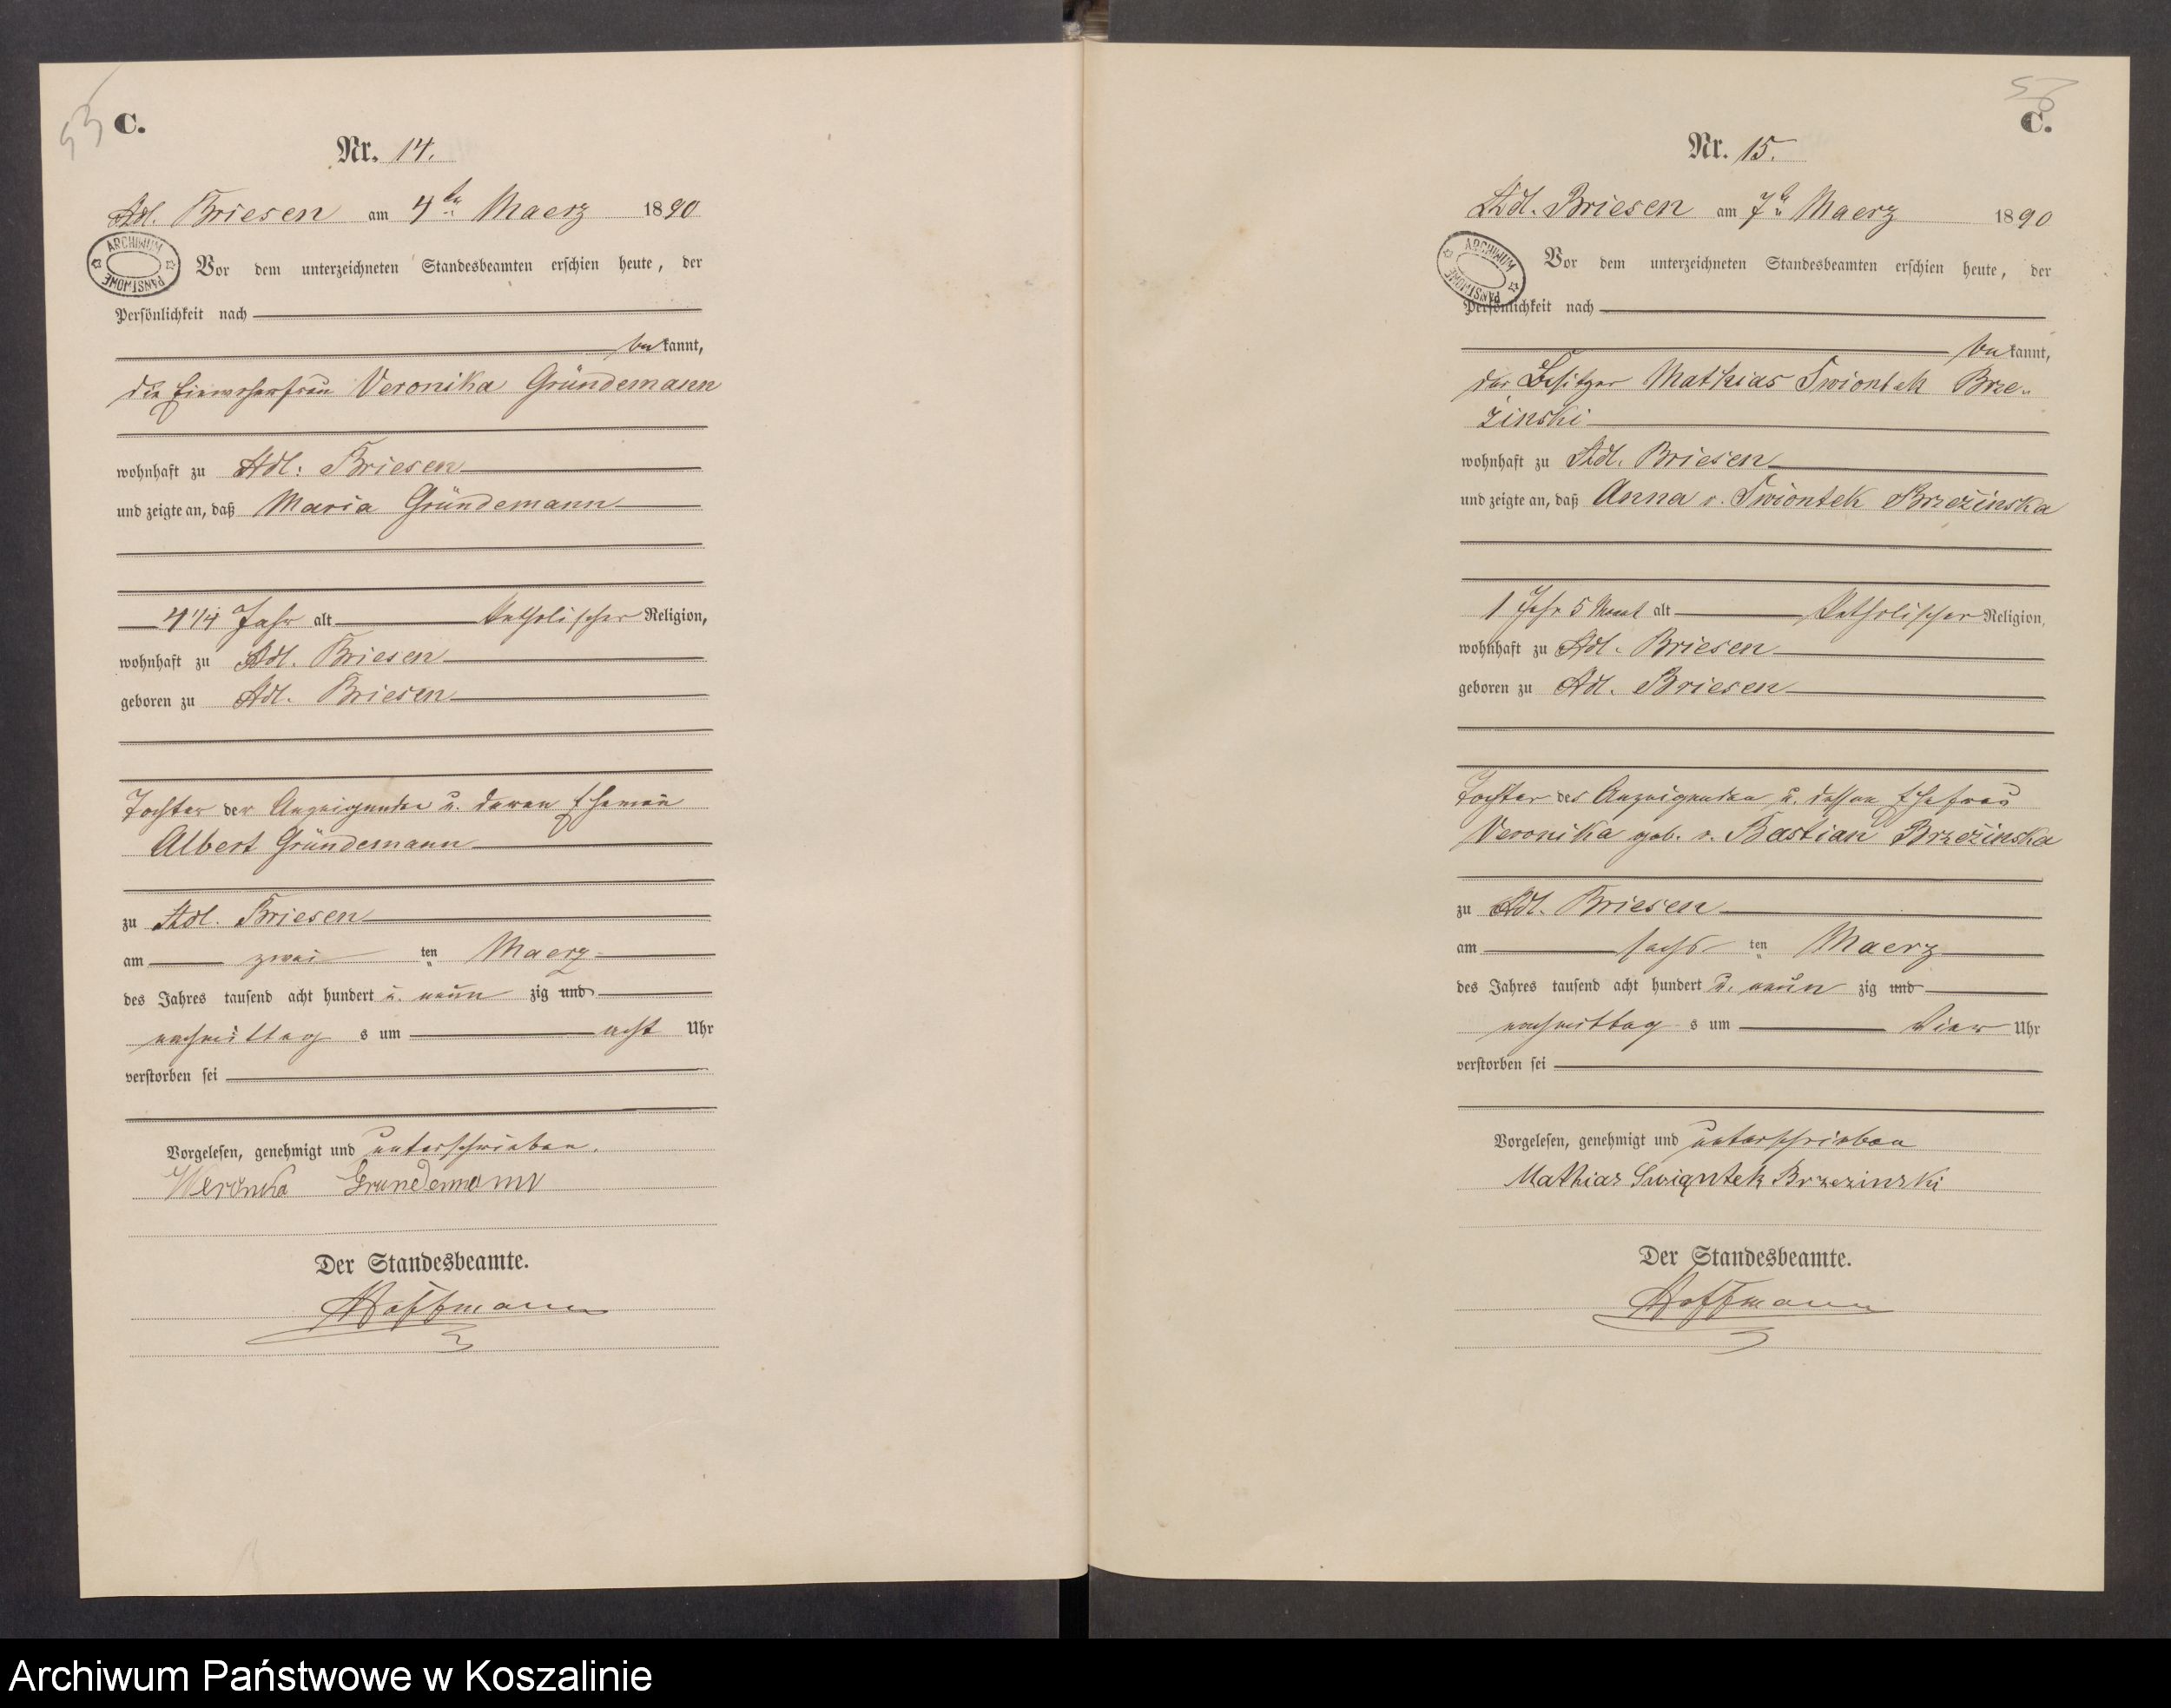 53
C.
Nr. 14.
Adl. Briesen am 4ten Maerz 1890
ARCHIWUM PAŃSTWOWE
Vor dem unterzeichneten Standesbeamten erschien heute, der
Persönlichkeit nach
bekannt,
die Einwohnerfrau Veronika Gründemann
wohnhaft zu Adl. Briesen
und zeigte an, daß Maria Gründemann
4 1/4 Jahr alt katholischer Religion,
wohnhaft zu Adl. Briesen
geboren zu Adl. Briesen
Tochter der Anzeigenden u. deren Ehemann
Albert Gründemann
zu Adl. Briesen
am zwei ten Maerz
des Jahres tausend acht hundert u. neun zig und
nachmittag s um acht Uhr
verstorben sei
Vorgelesen, genehmigt und unterschrieben.
Weronika Grundemann
Der Standesbeamte.
Hoffmann
C.
Nr. 15.
Adl. Briesen am 7ten Maerz 1890
ARCHIWUM PAŃSTWOWE
Vor dem unterzeichneten Standesbeamten erschien heute, der
Persönlichkeit nach
bekannt,
der Besitzer Mathias Swiontek Brze-
żinski
wohnhaft zu Adl. Briesen
und zeigte an, daß Anna v. Swiontek Brzeżinska
1 Jahr 5 Monat alt katholischer Religion,
wohnhaft zu Adl. Briesen
geboren zu Adl. Briesen
Tochter des Anzeigenden u. dessen Ehefrau
Veronika geb. v. Bastian Brzeżinska
zu Adl. Briesen
am sechs ten Maerz
des Jahres tausend acht hundert u. neun zig und
nachmittag s um vier Uhr
verstorben sei
Vorgelesen, genehmigt und unterschrieben
Mathias Swiątek Brzezinski
Der Standesbeamte.
Hoffmann
Archiwum Państwowe w Koszalinie